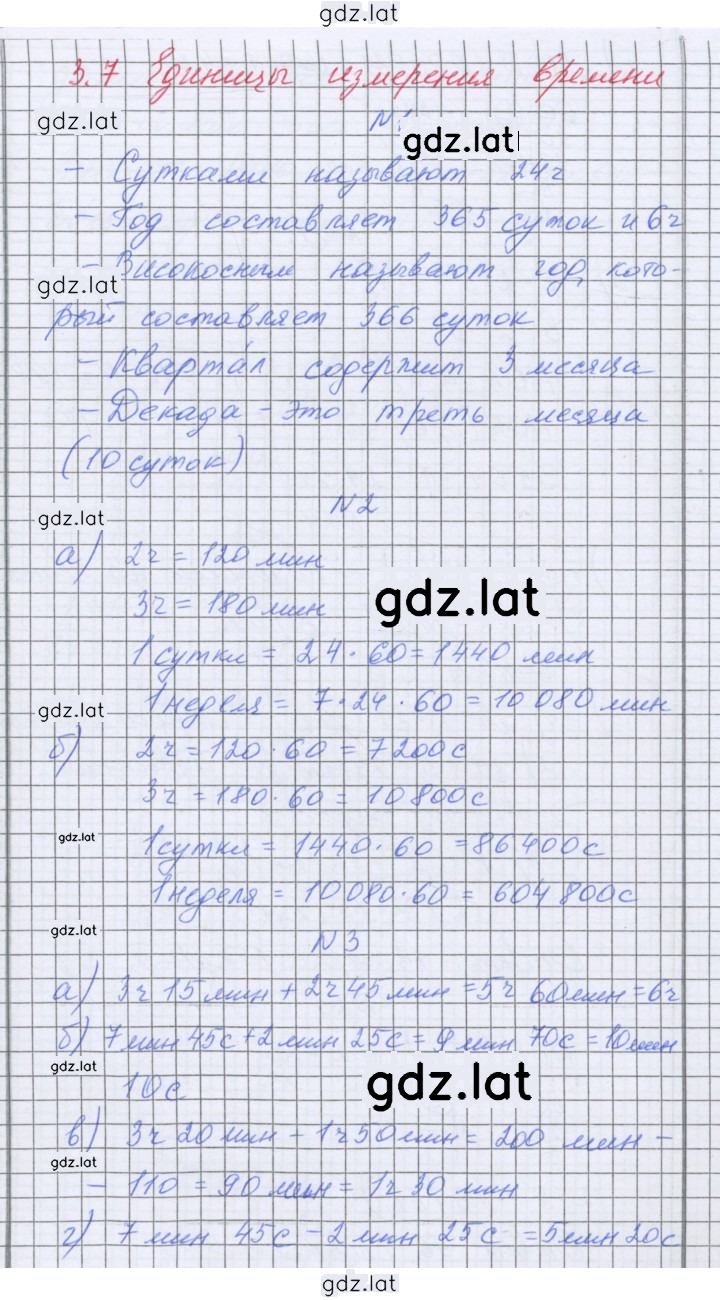 gdz.lat
3.7 Единицы измерения времени
gdz.lat
gdz.lat
- Сутками называют 24ч
- Год составляет 365 суток и 6ч
- Високосным называют год, кото-
gdz.lat
рый составляет 366 суток
- Квартал содержит 3 месяца
- Декада - это треть месяца
(10 суток)
N2
gdz.lat
а) 2ч = 120 мин
gdz.lat
3ч = 180 мин
1 сутки = 24 · 60 = 1440 мин
1 неделя = 7 · 24 · 60 = 10 080 мин
gdz.lat
б) 2ч = 120 · 60 = 7200с
3ч = 180 · 60 = 10800с
gdz.lat
1 сутки = 1440 · 60 = 86400с
1 неделя = 10 080 · 60 = 604 800с
gdz.lat
N3
а) 3ч 15 мин + 2ч 45 мин = 5ч 60 мин = 6ч
б) 7 мин 45с + 2 мин 25с = 9 мин 70с = 10 мин
gdz.lat
10с
gdz.lat
в) 3ч 20 мин - 1ч 50 мин = 200 мин -
gdz.lat
- 110 = 90 мин = 1ч 30 мин
г) 7 мин 45с - 2 мин 25с = 5 мин 20с
gdz.lat